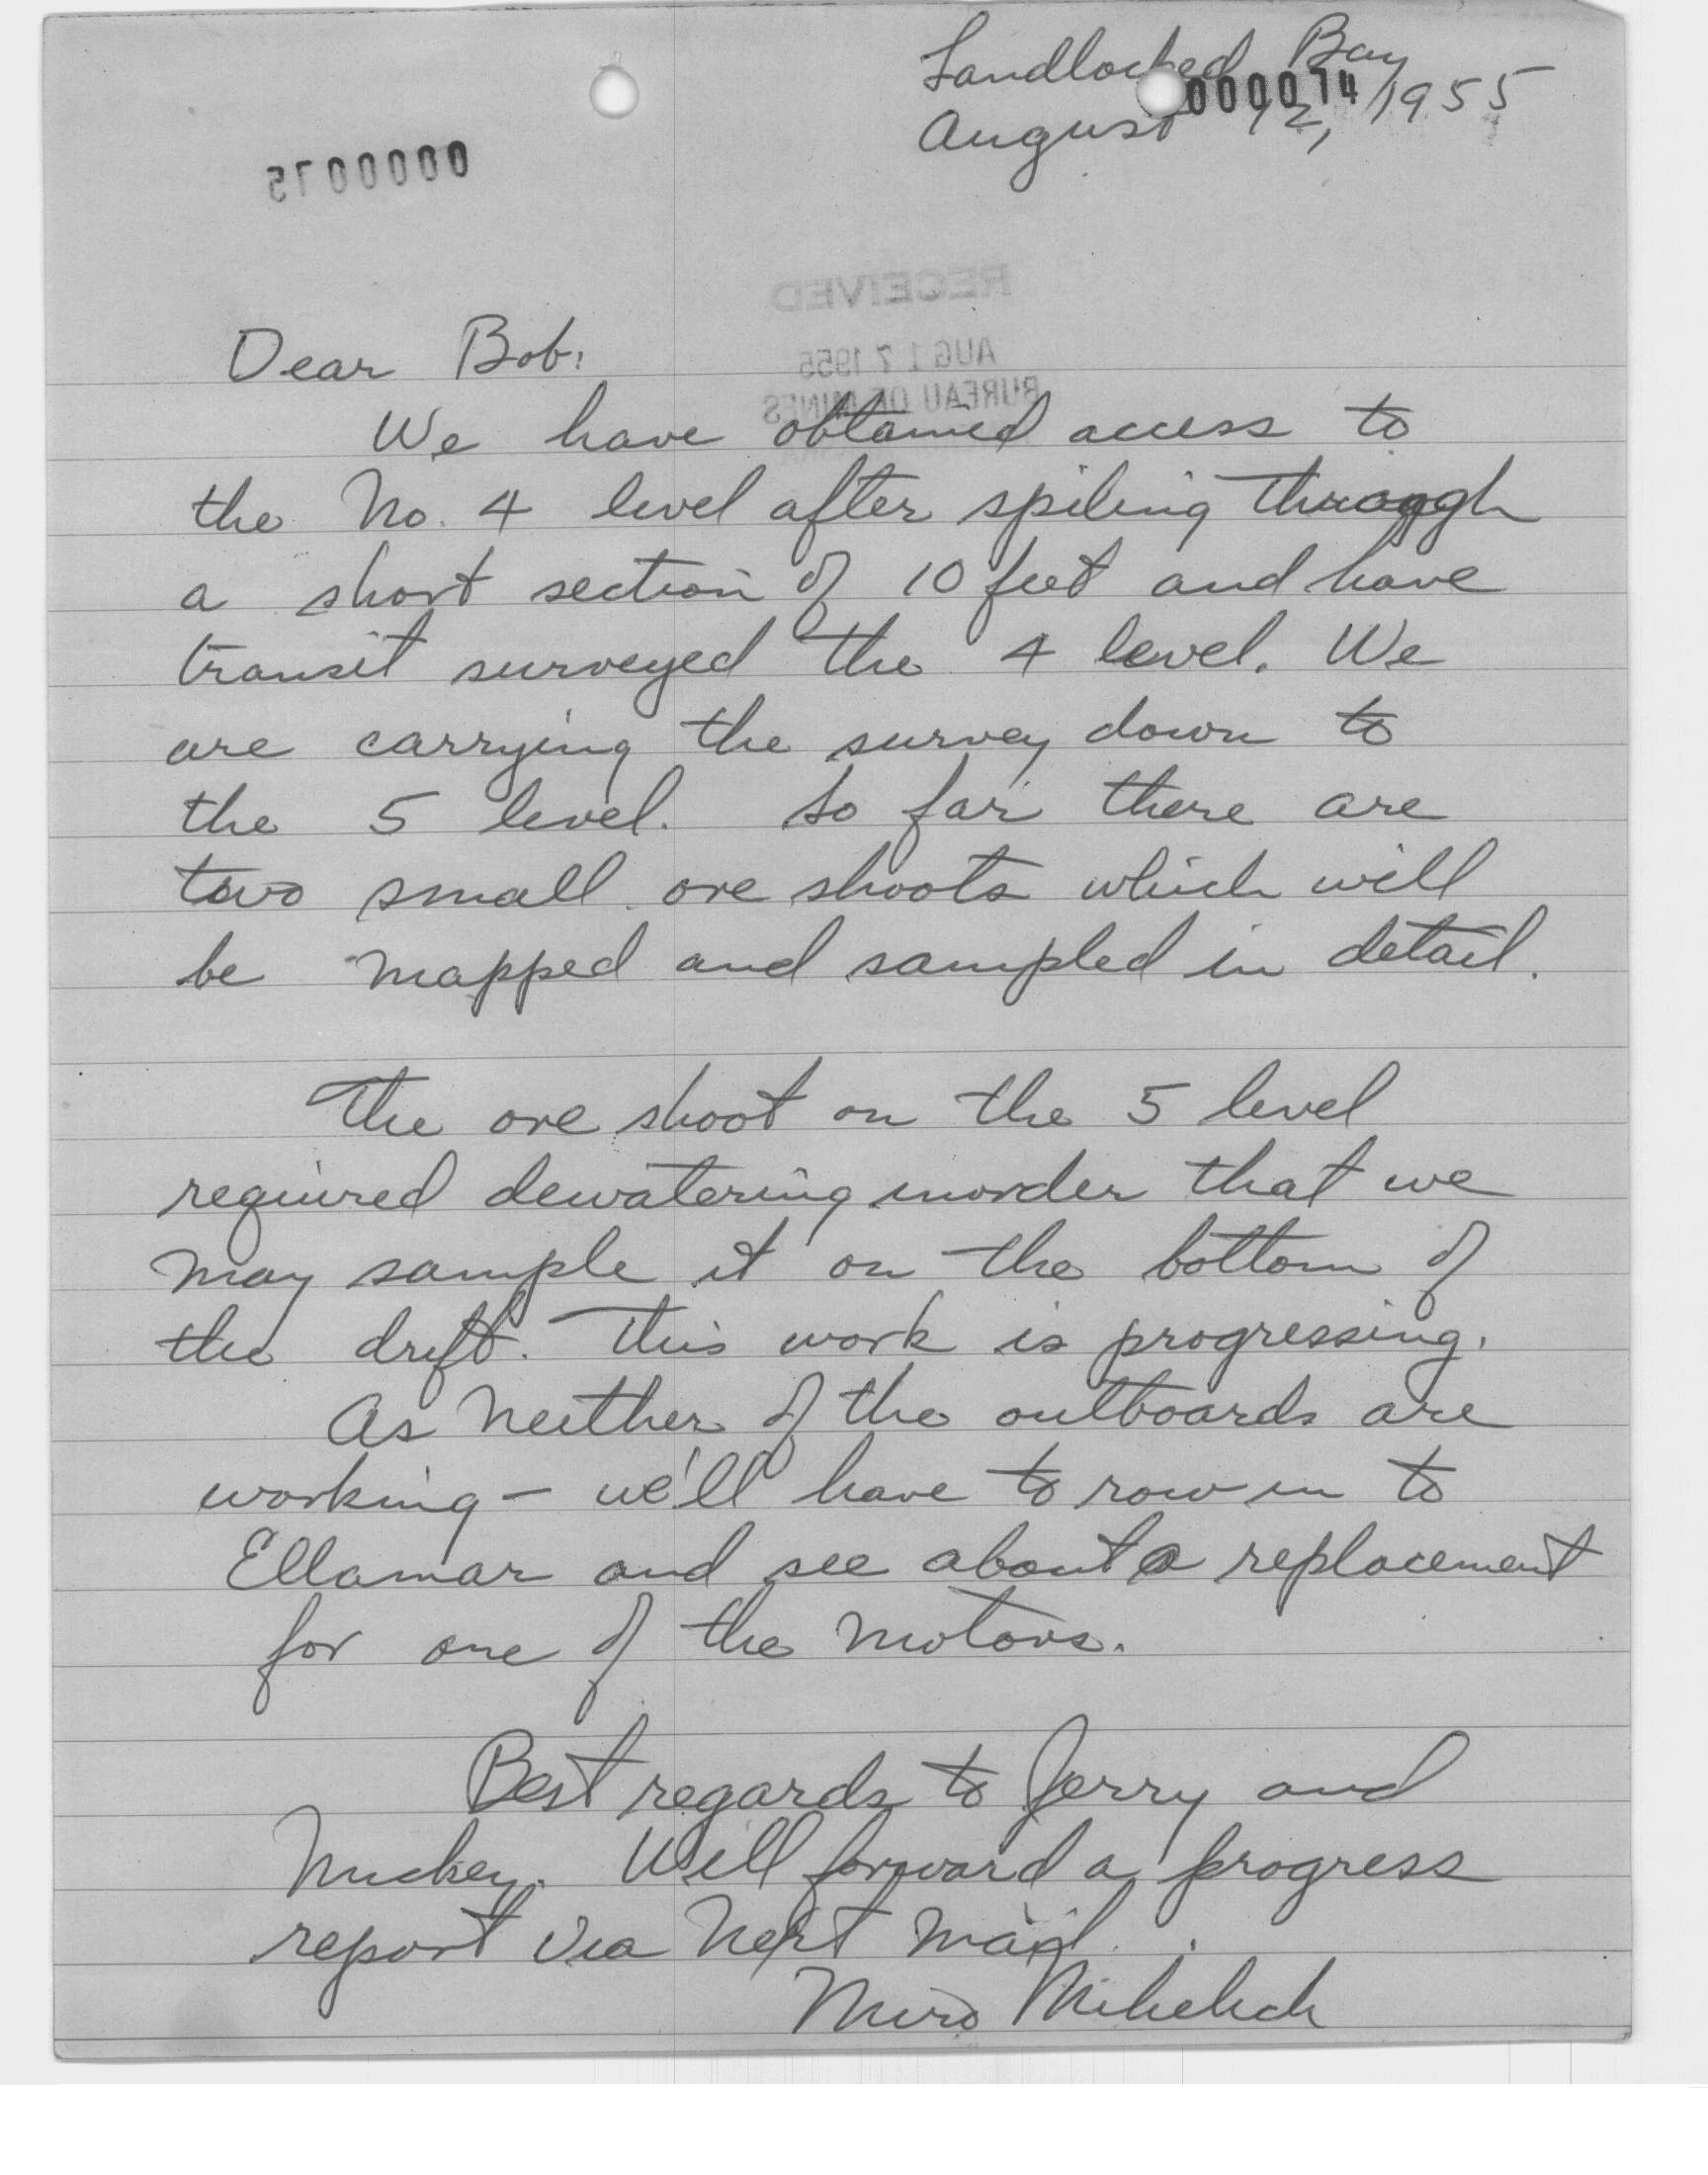 Landlocked Bay
000074
August 12, 1955
0000075
RECEIVED
AUG 17 1955
BUREAU OF MINES
Dear Bob:
We have obtained access to
the No. 4 level after spiling through
a short section of 10 feet and have
transit surveyed the 4 level. We
are carrying the survey down to
the 5 level. So far there are
two small ore shoots which will
be mapped and sampled in detail.
The ore shoot on the 5 level
required dewatering inorder that we
may sample it on the bottom of
the drift. This work is progressing.
As Neither of the outboards are
working - we'll have to row in to
Ellamar and see about a replacement
for one of the motors.
Best regards to Jerry and
Mickey. Will forward a progress
report via Next mail.
Miro Mihelich